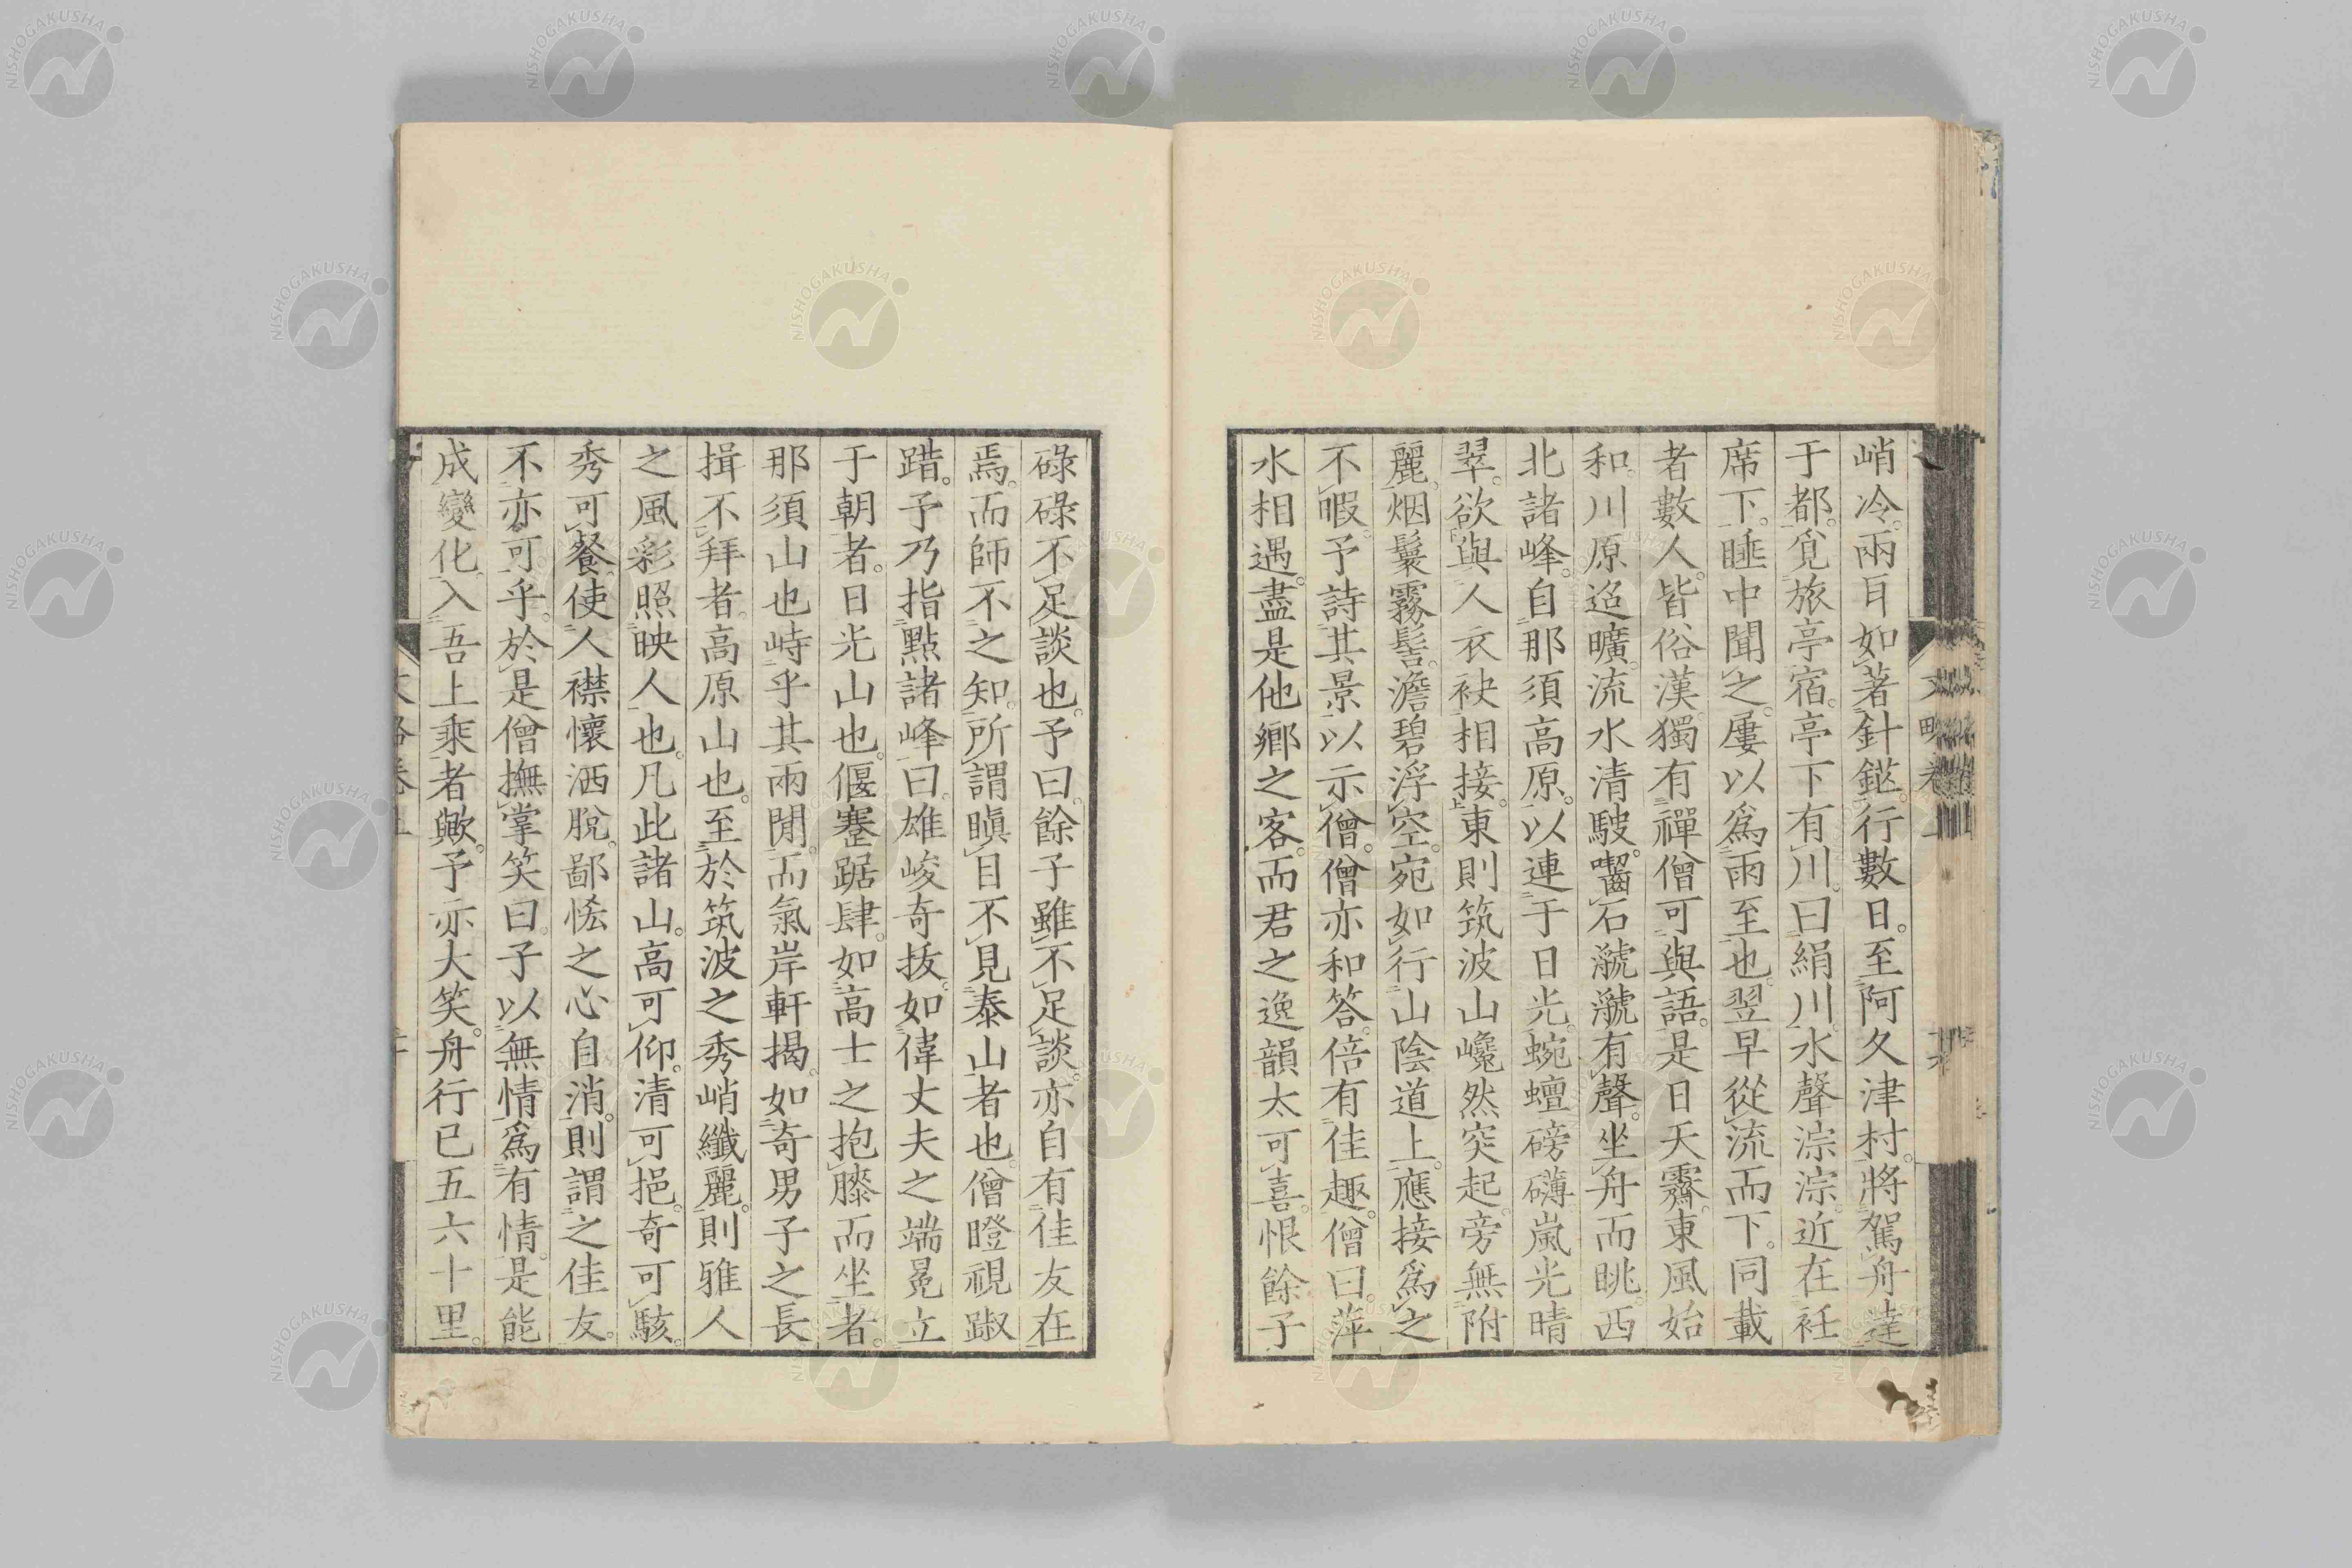 峭冷。兩耳如著針鎚。行數日。至阿久津村。將駕舟達
于都。覓旅亭宿。亭下有川。曰絹川。水聲淙淙。近在衽
席下。睡中聞之。屢以爲雨至也。翌早從流而下。同載
者數人。皆俗漢。獨有禪僧可與語。是日天霽。東風始
和。川原迢曠。流水清駛。囓石㶁㶁有聲。坐舟而眺。西
北諸峰。自那須高原。以連于日光。蜿蟺磅礴。嵐光晴
翠。欲與人衣袂相接。東則筑波山巉然突起。旁無附
麗。烟鬟霧髻。澹碧浮空。宛如行山陰道上。應接爲之
不暇。予詩其景以示僧。僧亦和答。倍有佳趣。僧曰。萍
水相遇。盡是他鄉之客。而君之逸韻太可喜。恨餘子
碌碌不足談也。予曰。餘子雖不足談。亦自有佳友在
焉。而師不之知。所謂瞋目不見泰山者也。僧瞪視踧
踖。予乃指點諸峰曰。雄峻奇拔。如偉丈夫之端冕立
于朝者。日光山也。偃蹇踞肆。如高士之抱膝而坐者。
那須山也。峙乎其兩閒。而氣岸軒揭。如奇男子之長
揖不拜者。高原山也。至於筑波之秀峭纖麗。則雅人
之風彩照映人也。凡此諸山。高可仰。清可挹。奇可駭。
秀可餐。使人襟懷洒脫。鄙悋之心自消。則謂之佳友。
不亦可乎。於是僧撫掌笑曰。子以無情爲有情。是能
成變化。入吾上乘者歟。予亦大笑。舟行已五六十里。